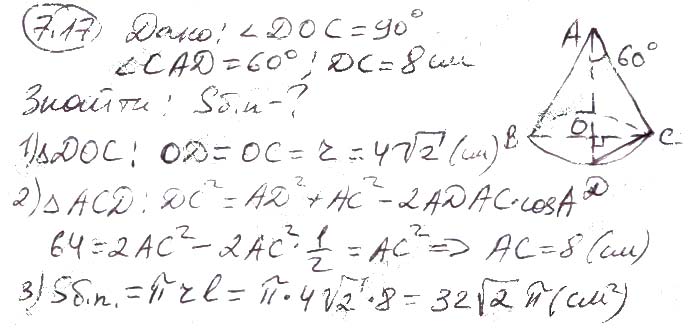 7.17 Дано: ∠DOC = 90°
∠CAD = 60°; DC = 8 см
Знайти: Sб.п. - ?
1) △DOC: OD = OC = r = 4√2 (см)
2) △ACD: DC² = AD² + AC² - 2AD AC·cosA
64 = 2AC² - 2AC²·1/2 = AC² => AC = 8 (см)
3) Sб.п. = πrl = π·4√2·8 = 32√2 π (см²)
A
60°
B
O
C
D